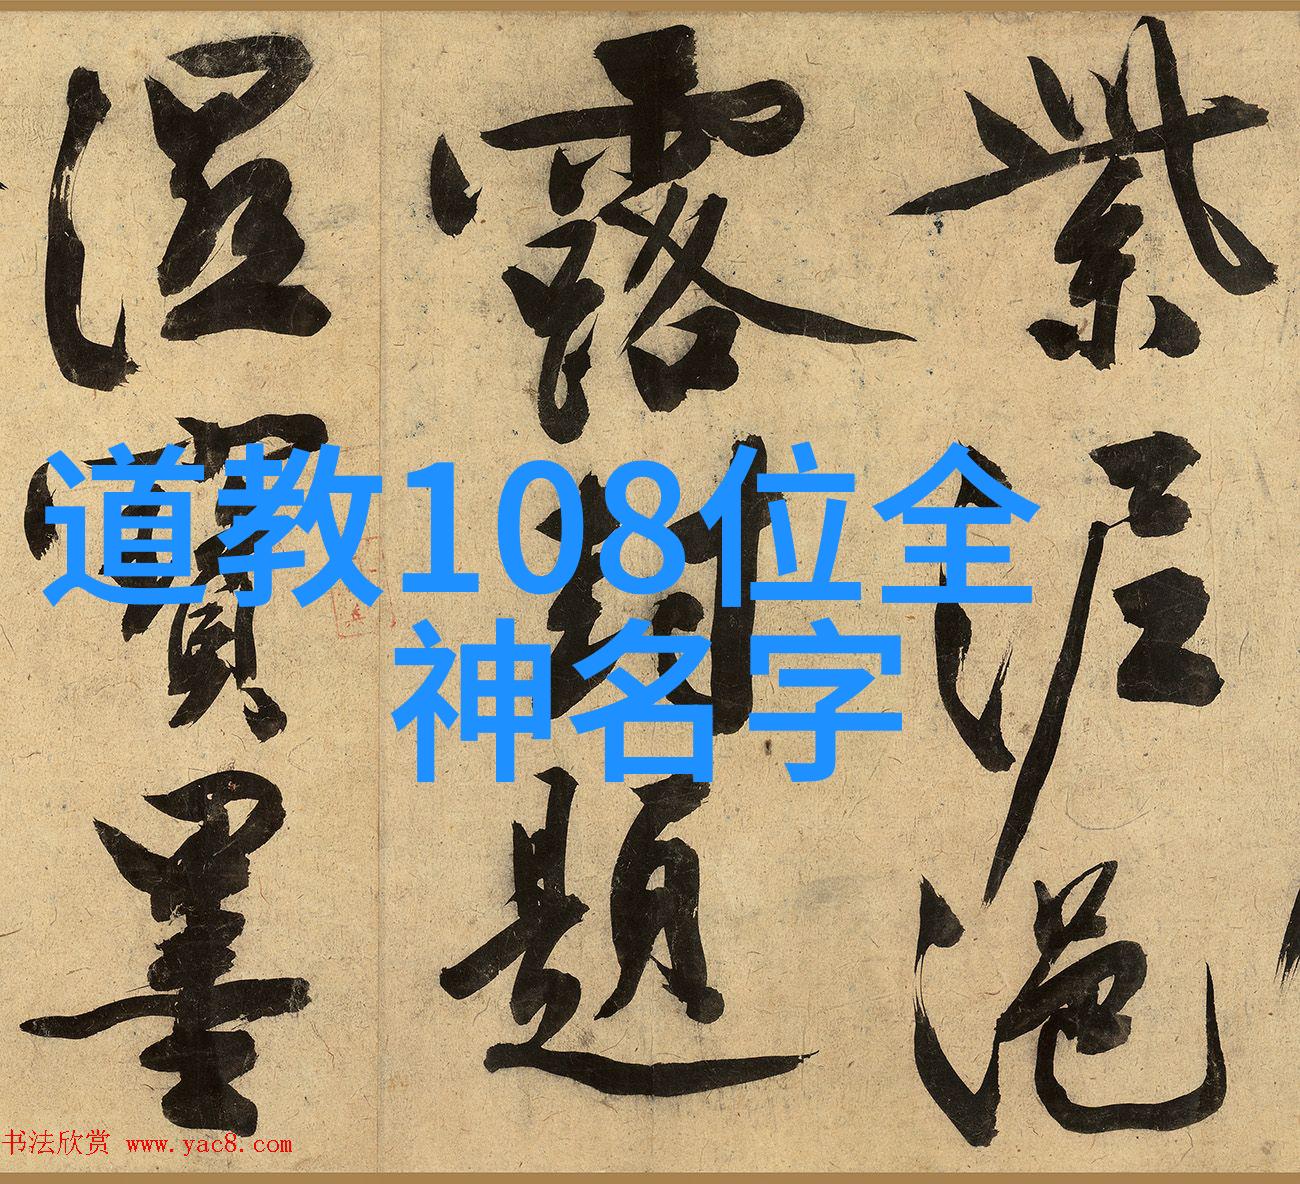 紫泥浥
露封題
湿寶墨
道教108位全
神名字
书法欣赏 www.yac8.com